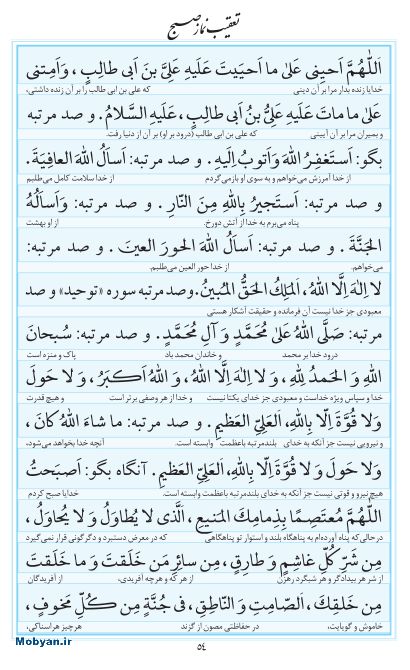 تعقیب نماز صبح
اَللّٰهُمَّ اَحیِنی عَلیٰ ما اَحیَیتَ عَلَیهِ عَلِیَّ بنَ اَبی طالِبٍ، وَاَمِتنی
خدایا زنده بدار مرا بر آن دینی که علی بن ابی طالب را بر آن زنده داشتی،
عَلیٰ ما ماتَ عَلَیهِ عَلِیُّ بنُ اَبی طالِبٍ، عَلَیهِ السَّلامُ. و صد مرتبه
و بمیران مرا بر آن آیینی که علی بن ابی طالب (درود بر او) بر آن از دنیا رفت.
بگو: اَستَغفِرُ اللهَ وَاَتوبُ اِلَیهِ. و صد مرتبه: اَسأَلُ اللهَ العافِیَةَ.
از خدا آمرزش می‌خواهم و به سوی او بازمی‌گردم از خدا سلامت کامل می‌طلبم
و صد مرتبه: اَستَجیرُ بِاللهِ مِنَ النّارِ. و صد مرتبه: وَاَسأَلُهُ
پناه می‌برم به خدا از آتش دوزخ. از او بهشت
الجَنَّةَ. و صد مرتبه: اَسأَلُ اللهَ الحورَ العینَ. و صد مرتبه:
می‌خواهم. از خدا حور العین می‌طلبم.
لا اِلٰهَ اِلَّا اللهُ، اَلمَلِكُ الحَقُّ المُبینُ. وصد مرتبه سوره «توحید» و صد
معبودی جز خدا نیست آن فرمانده و حقیقت آشکار هستی
مرتبه: صَلَّی اللهُ عَلیٰ مُحَمَّدٍ وَ آلِ مُحَمَّدٍ. و صد مرتبه: سُبحانَ
درود خدا بر محمد و خاندان محمد باد پاک و منزه است
اللهِ وَ الحَمدُ لِلّٰهِ، وَ لا اِلٰهَ اِلَّا اللهُ، وَ اللهُ اَکبَرُ، وَ لا حَولَ
الله و سپاس ویژه خداست و معبودی جز خدای یکتا نیست و خدا از هر وصفی برتر است و هیچ قدرت
وَلا قُوَّةَ اِلّا بِاللهِ، العَلِیِّ العَظیمِ. و صد مرتبه: ما شاءَ اللهُ کانَ،
و نیرویی نیست جز آنکه به خدای بلندمرتبه باعظمت وابسته است. آنچه خدا بخواهد می‌شود،
وَلا حَولَ وَ لا قُوَّةَ اِلّا بِاللهِ، العَلِیِّ العَظیمِ. آنگاه بگو: اَصبَحتُ
هیچ نیرو و قوتی نیست جز آنکه به خدای بلندمرتبه باعظمت وابسته است. خدایا صبح کردم
اللّٰهُمَّ مُعتَصِمًا بِذِمامِكَ المَنیعِ، اَلَّذی لا یُطاوَلُ وَ لا یُحاوَلُ،
درحالی‌که پناه آورده‌ام به پناهگاه بلند و استوار تو پناهگاهی که در معرض دستبرد و دگرگونی قرار نمی‌گیرد
مِن شَرِّ کُلِّ غاشِمٍ وَ طارِقٍ، مِن سائِرِ مَن خَلَقتَ وَ ما خَلَقتَ
از شر هر بیدادگر و هر شبگرد رهزن از هر که و هرچه آفریدی، از آفریدگان
مِن خَلقِكَ، اَلصّامِتِ وَ النّاطِقِ، فی جُنَّةٍ مِن کُلِّ مَخوفٍ،
خاموش و گویایت، در حفاظتی مصون از گزند هرچیز هراسناکی،
۵٤
Mobyan.ir